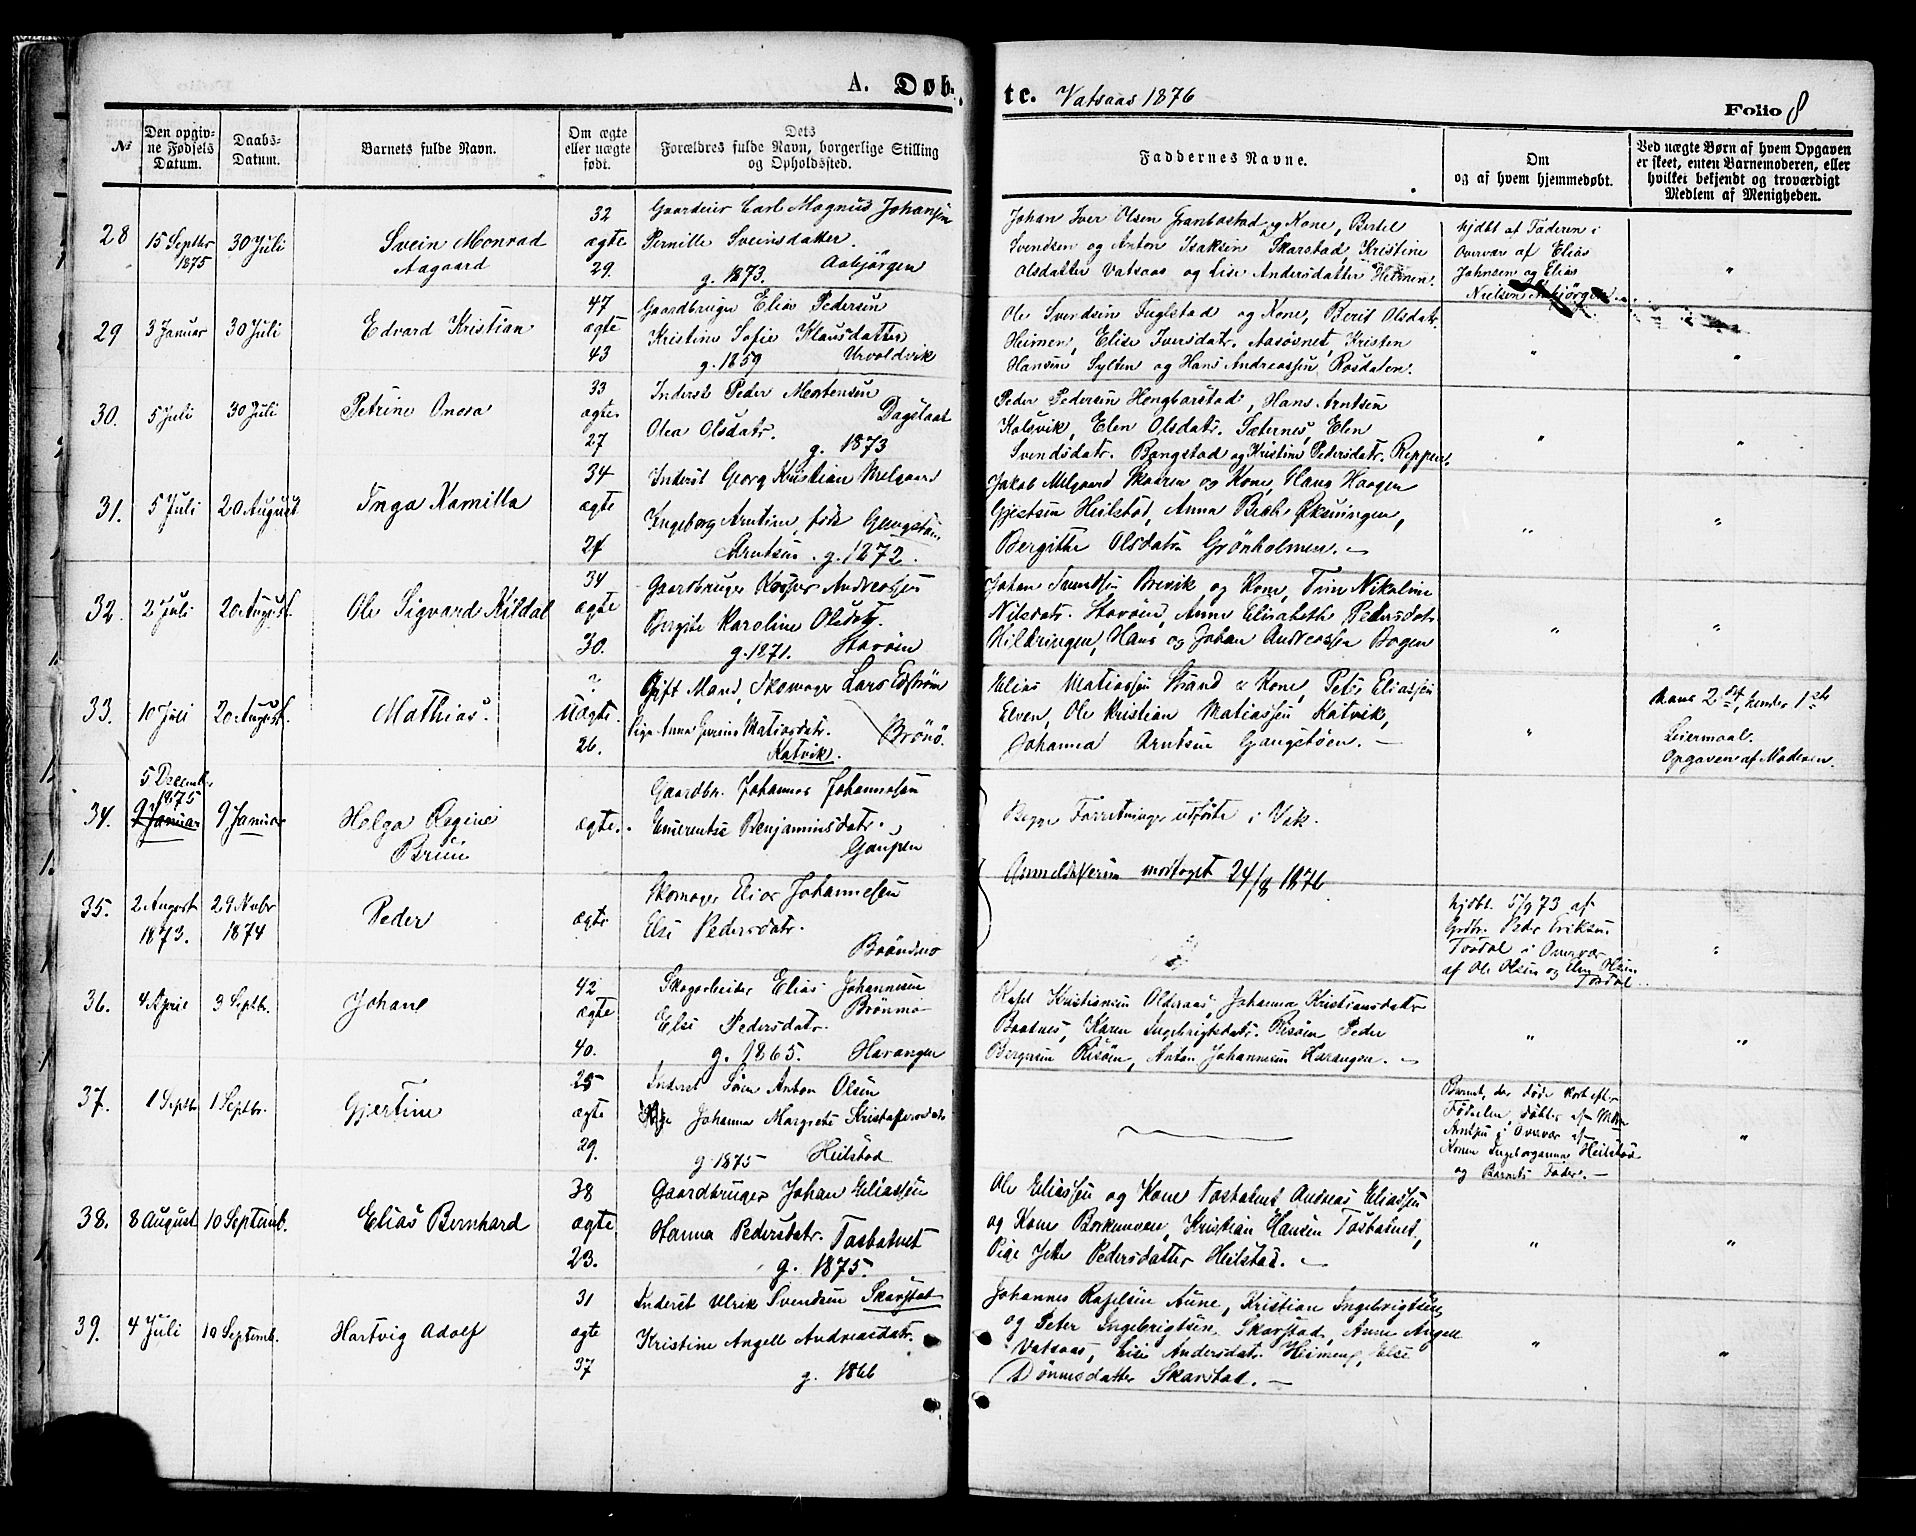 A. Døb-
te. Vatsaas 1876
Folio 8
№
Den opgiv-
ne Fødsels
Datum.
Daabs-
Datum.
Barnets fulde Navn.
Om ægte
eller uægte
født.
Dets
Forældres fulde Navn, borgerlige Stilling
og Opholdssted.
Faddernes Navne.
Om
og af hvem hjemmedøbt.
Ved uægte Børn af hvem Opgaven
er skeet, enten Barnemoderen, eller
hvilket bekjendt og troværdigt
Medlem af Menigheden.
28
15 Septbr
1875
30 Juli
Svein Monrad
Aagaard
32
ægte
29.
Gaardeier Carl Magnus Johansen
Pernille Sveinsdatter
g. 1873. Aabjørgen
Johan Iver Olsen Granbostad og Kone, Bertel
Svendsen og Anton Isaksen Skarstad, Kristine
Olsdatter Vatsaas og Lise Andersdatter Heimen.
hjdbt af Faderen i
Overvær af Elias
Johnsen og Elias
Nielsen Aabjørgen
"
29
3 Januar
30 Juli
Edvard Kristian
47
ægte
43
Gaardbruger Elias Pedersen
Kristine Sofie Klausdatter
g. 1859 Urvoldvik
Ole Svendsen Fuglstad og Kone, Berit Olsdatr.
Heimen, Elise Iversdatr. Aasøvnet, Kristen
Hansen Sylten og Hans Andreassen Rosdalen.
"
"
30.
5 Juli
30 Juli
Petrine Onea
33
ægte
27
Inderst Peder Mortensen
Dagslaat
Olea Olsdatr.
g. 1873
Peder Pedersen Hongbarstad, Hans Arntsen
Kolsvik, Elen Olsdatr. Sæternes, Elen
Svendsdatr. Bangstad og Kristine Pedersdatr. Reppen.
"
"
31.
5 Juli
20 August
Inga Kamilla
34
ægte
27
Inderst Georg Kristian Melgaard
Ingeborg Arntine, født Gangstøen
Arntsen. g. 1872.
Jakob Melgaard Skaaren og Kone, Hans Haagen
Gjertsen Heilstad, Anna Øksningen,
Bergitthe Olsdatr. Grönholmen. —
"
"
32.
2 Juli
20 August.
Ole Sigvard Kildal
34
ægte
30.
Gaardbruger Kasper Andreassen
Bergite Karoline Olsdatr.
g. 1871. Storøen
Johan Svendsen Brevik og Kone, Trine Nikoline
Nilsdatr. Storøen, Anne Elisabeth Pedersdatr.
Hildringen, Hans og Johan Andreassen Bogen
"
"
33.
10 Juli
20 August.
Mathias.
?
Uægte.
26.
Gift Mand, Skomager Lars Edstrøm
Brönö.
Pige Anna Matiasdatr.
Katvik.
Elias Matiassen Strand & Kone, Peter Eliassen
Elven, Ole Kristian Matiassen Katvik,
Johanna Arntsen Gangstøen. —
"
hans 2det, hendes 1ste
Leiermaal.
Opgaven af Moderen.
34.
5 Decembr
1875
9 Januar
9 Januar
Helga Regine
Bruun
ægte.
Gaardbr. Johannes Johannesen
Emerentse Benjaminsdatr.
Gaupen
Begge Forretninger udførte i Vik.
Anmeldelsen modtaget 24/8 1876
35.
2 August
1873.
29 Novbr
1874
Peder
ægte
Skomager Elias Johannesen
Else Pedersdatr.
Bröndmo
hjdbt. 5/9 73 af
Grdbr. Peder Eriksen
Tosdal i Overvær
af Ole Olsen og Elen Olsen
Tosdal.
"
36.
4 April
3 Septbr.
Johane
42
ægte
40.
Skogarbeider Elias Johannesen
Bröndmo
Else Pedersdatr.
g. 1865. Harangen
Rafel Kristiansen Olderaas, Johanna Kristiansdatter
Baatnes, Karen Ingebrigtsdatr. Risøen, Peder
Bergersen Risøen, Anton Johannesen Harangen. —
"
"
37.
1 Septbr
1 Septbr.
Gjertine
25
ægte
29.
Inderst Søren Anton Olsen
Johanna Margrete Kristoffersdatr
g. 1875 Heilstad
Barnet, der døde kort efter
Fødselen døbtes af
Arntsen i Overvær af
Konen Ingeborganna Heilstad
og Barnets Fader. —
"
38.
8 August
10 Septemb.
Elias Bernhard
38
ægte
23.
Gaardbruger Johan Eliassen
Hanna Pedersdatr. Tosbotnet
g. 1875.
Ole Eliassen og Kone Tosbotnet, Andreas Eliassen
og Kone Borkamoen, Kristian Hansen Tosbotnet,
Pige Jette Pedersdatter Heilstad. —
"
"
39.
4 Juli
10 Septemb.
Hartvig Adolf
31
ægte
37
Inderst Ulrik Svendsen Skarstad
Kristine Angell Andreasdatr.
g. 1866
Johannes Rafelsen Aune, Kristian Ingebrigtsen
og Peter Ingebrigtsen Skarstad, Anne Angell
Vatsaas, Lise Andersdatr. Heimen, Else
Dönnesdatter Skarstad. —
"
"